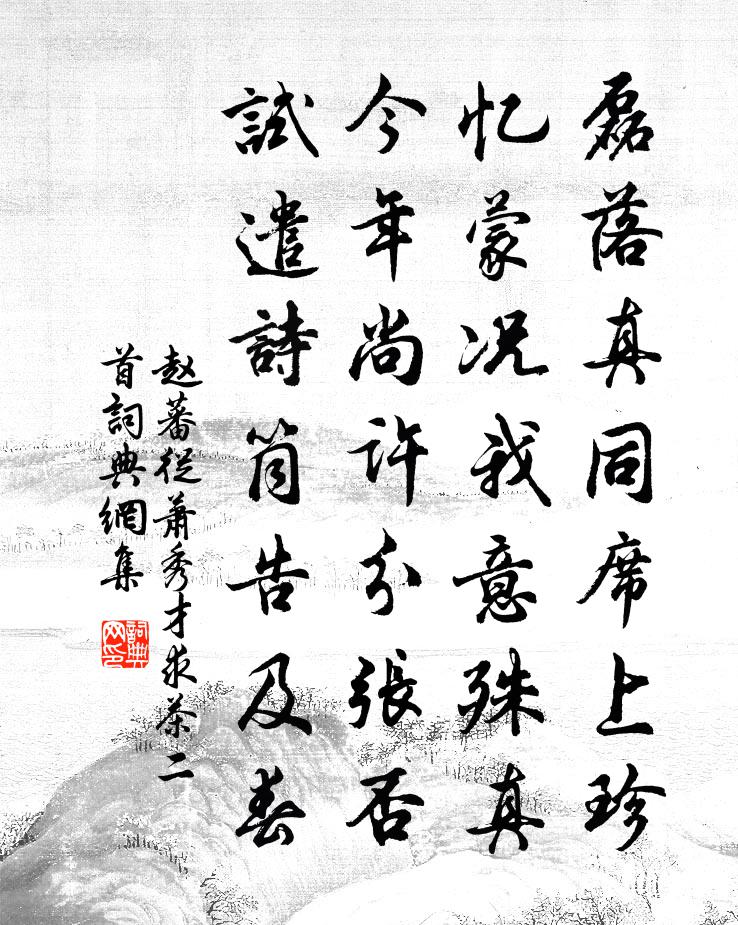 磊落真同席上珍
忆蒙况我意殊真
今年尚许分张否
試遣詩筒告及春
赵蕃從蕭秀才求茶二
首詞典網集
詞典
网印